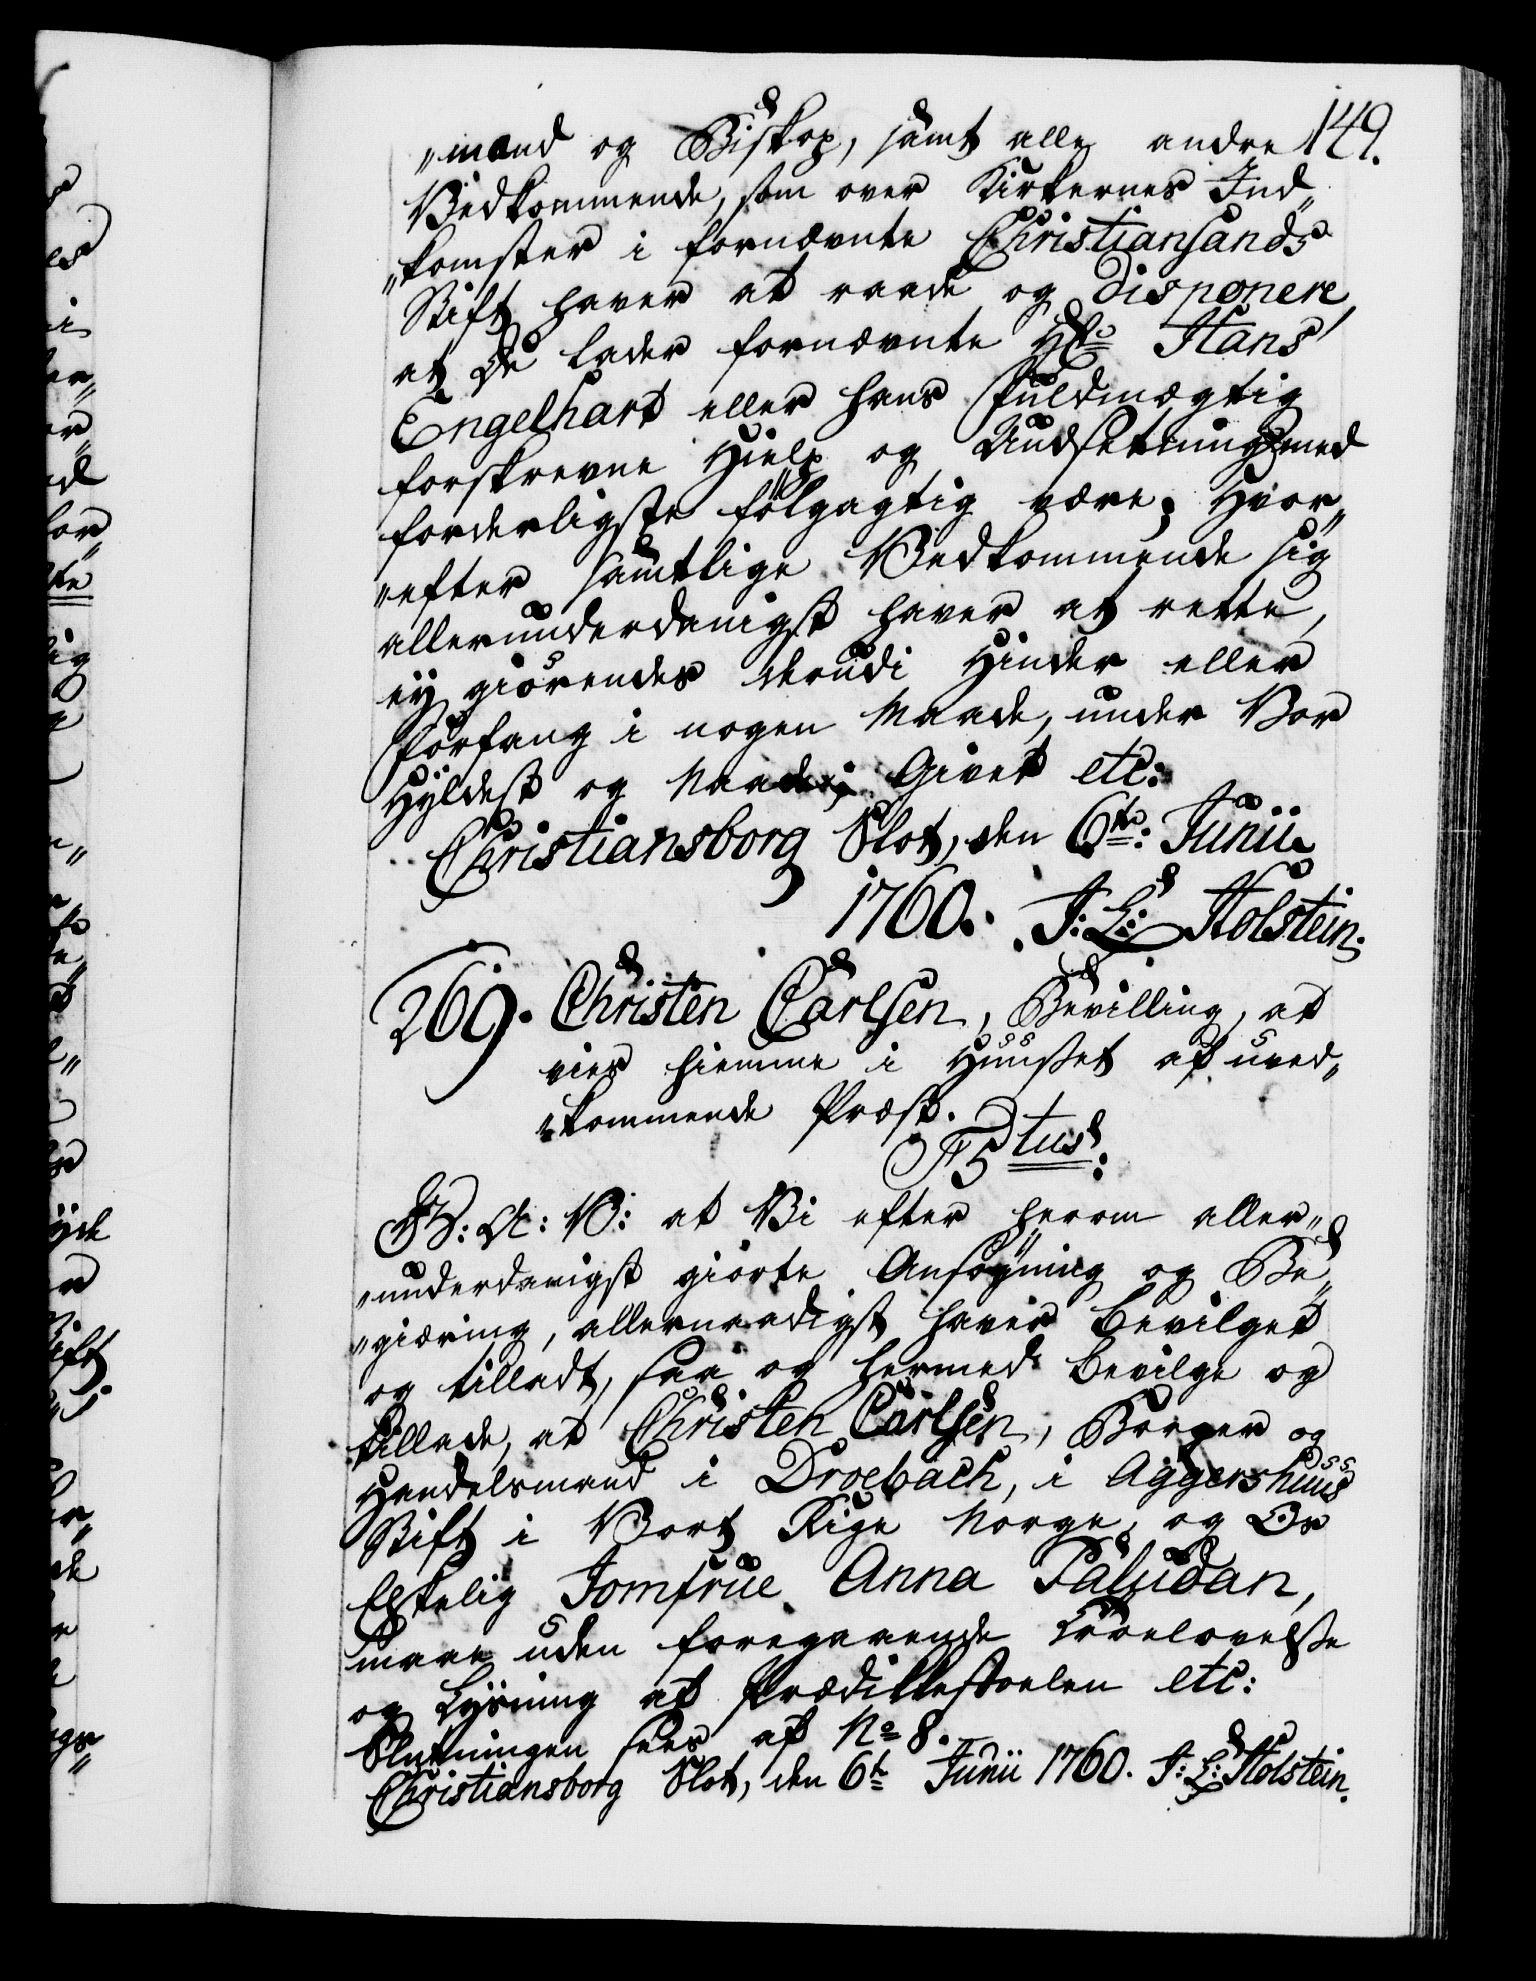 149.
„mand og Biskop, samt alle andre
Vedkommende, som over Kirkernes Ind„
„komster i fornævnte Christiansands
Stift haver at raade og disponere,
at De lader fornævnte Hr: Hans
Engelhart eller hans Fuldmægtig
forskrevne Hielp og Undsetning med
forderligste følgagtig være; Hvor„
„efter samtlige Vedkommende sig
allerunderdanigst haver at rette,
ey giörendes derudi Hinder eller
Forfang i nogen Maade, under Vor
Hyldest og Naade; Givet etc:
Christiansborg Slot, den 6te: Junii
1760. J: L: Holstein.
269. Christen Carlsen, Bevilling, at
vies hiemme i Huuset af uved„
„kommende Præst.
F 5tus:
G: A: V: at Vi efter herom aller„
„underdanigst giorte Ansøgning og Be„
„giæring, allernaadigst haver bevilget
og tilladt, saa og hermed bevilge og
tillade, at Christen Carlsen, Borger og
Handelsmand i Droebach, i Aggershuus
Stift i Vort Rige Norge, og Os
Elskelig Jomfrue Anna Paludan,
maae uden foregaaende Troelovelse
og Lysning af Prædikestoelen etc:
Slutningen sees af No 8.
Christiansborg Slot, den 6te Junii 1760. J: L: Holstein.